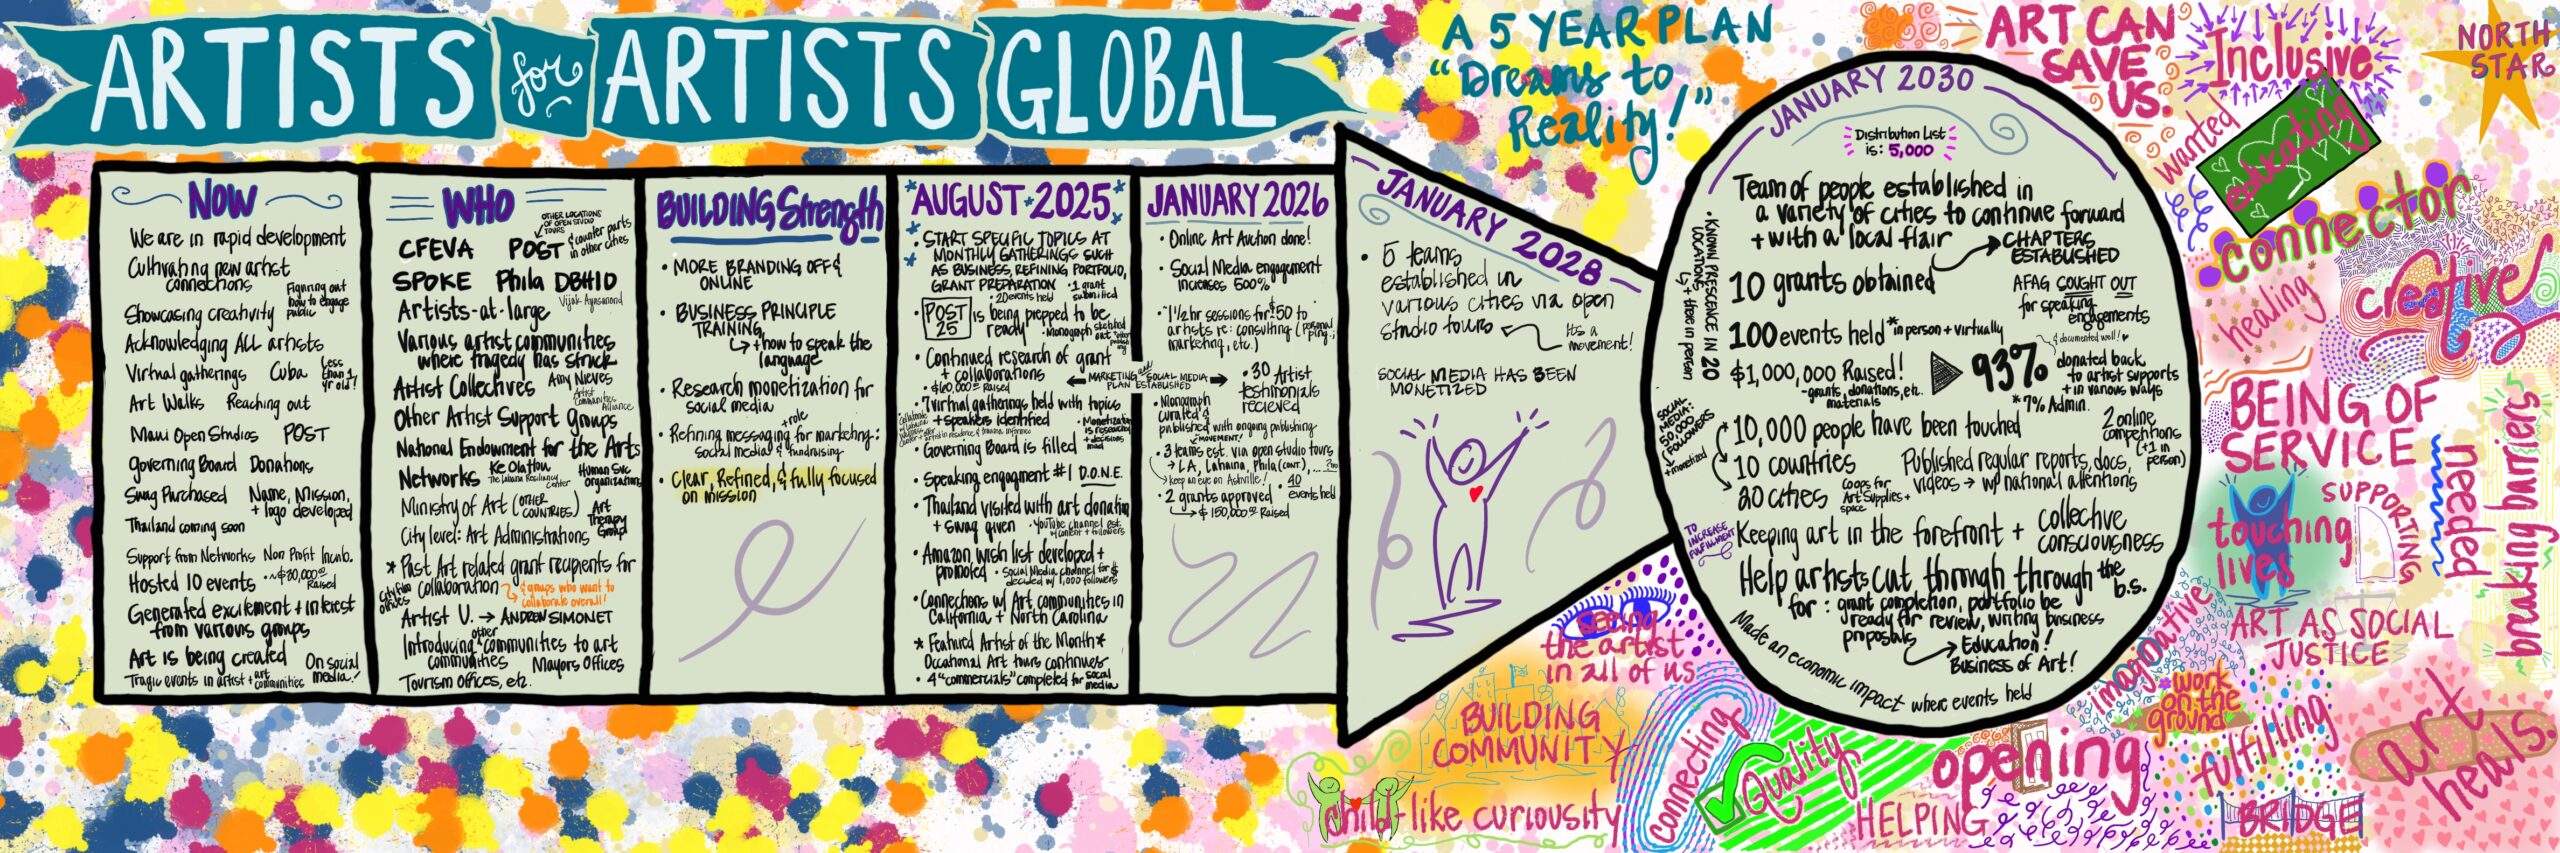 ARTISTS for ARTISTS GLOBAL
A 5 YEAR PLAN
"Dreams to
Reality!"
NOW
We are in rapid development
Cultivating new artist
connections
Figuring out
how to engage
public
Showcasing creativity
Acknowledging ALL artists
Virtual gatherings Cuba
Less
than 1
yr old!
Art Walks Reaching out
Maui Open Studios POST
Governing Board Donations
Swag Purchased Name, Mission,
+ logo developed
Thailand coming soon
Support from Networks Non Profit Incub.
Hosted 10 events
Raised
Generated excitement + interest
from various groups
Art is being created
On social
media!
Tragic events in artist + art
communities
WHO
OTHER LOCATIONS
OF OPEN STUDIO
TOURS
& counter parts
in other cities
CFEVA POST
SPOKE Phila DBHID
Artists-at-large
Various artist communities
where tragedy has struck
Artist Collectives Amy Nieves
Artist
Communities
Alliance
Other Artist Support Groups
National Endowment for the Arts
Networks
Center
Human Svc
organizations
Ministry of Art (OTHER
COUNTRIES)
Art
Therapy
Group
City level: Art Administrations
* Past Art related grant recipients for
collaboration
& groups who want to
collaborate overall!
City Film
offices
Artist U. → ANDREW SIMONET
Introducing other communities to art
communities Mayors Offices
Tourism Offices, etc.
BUILDING Strength
• MORE BRANDING OFF &
ONLINE
• BUSINESS PRINCIPLE
TRAINING
+ how to speak the
language
• Research monetization for
social media
• Refining messaging + role for marketing:
social media & fundraising
• Clear, Refined, & fully focused
on mission
AUGUST 2025
• START SPECIFIC TOPICS AT
MONTHLY GATHERINGS SUCH
AS BUSINESS, REFINING PORTFOLIO,
GRANT PREPARATION
• 1 grant
submitted
• 20 events held
• POST
25
is being prepped to be
ready
• Monograph sketched
out
• Continued research of grant
+ collaborations
Raised
• 7 virtual gatherings held with topics
+ speakers identified
• Monetization
is researched
+ decisions
made
• Governing Board is filled
• Speaking engagment #1 D.O.N.E.
• Thailand visited with art donation
+ swag given
• YouTube channel est.
w/ content + followers
• Amazon wish list developed +
promoted
• Social Media channel for $
decided w/ 1,000 followers
• Connections w/ Art communities in
California + North Carolina
* Featured Artist of the Month *
Occational Art tours continues
• 4 "commercials" completed for social
media
MARKETING and SOCIAL MEDIA
PLAN ESTABLISHED
JANUARY 2026
• Online Art Auction done!
• Social Media engagement
increases 500%
• 1 1/2 hr sessions for $50 to
artists re: consulting
marketing, etc.)
• 30 Artist
testimonials
recieved
• Monograph
curated &
published with ongoing publishing
MOVEMENT!
• 3 teams est. via open studio tours
→ LA, Lahaina, Phila (CONT.), ...
• 40
events held
• 2 grants approved
Raised
JANUARY 2028
• 5 teams
established in
various cities via open
studio tours
Its a
movement!
SOCIAL MEDIA HAS BEEN
MONETIZED
JANUARY 2030
Distribution List
is: 5,000
Team of people established in
a variety of cities to continue forward
+ with a local flair
CHAPTERS
ESTABLISHED
• KNOWN PRESCENCE IN 20
LOCATIONS
+ there in person
10 grants obtained
AFAG SOUGHT OUT
for speaking
engagements
100 events held * in person + virtually
& documented well!
$1,000,000 Raised!
- grants, donations, etc.
materials
93%
donated back
to artist supports
+ in various ways
* 7% Admin.
SOCIAL
MEDIA:
50,000
FOLLOWERS
+ monetized
10,000 people have been touched
2 online
competitions
(+1 in
person)
10 countries
20 cities
Coops for
Art Supplies +
space
Published regular reports, docs,
videos → w/ national attentions
TO
INCREASE
FULFILLMENT
Keeping art in the forefront + collective
consciousness
Help artists cut through through the
b.s.
for: grant completion, portfolio be
ready for review, writing business
proposals
→ Education!
Business of Art!
Made an economic impact where events held
ART CAN
SAVE
US.
Inclusive
NORTH
STAR
wanted
educating
connector
healing
creative
BEING OF
SERVICE
needed
breaking barriers
touching
lives
SUPPORTING
ART AS SOCIAL
JUSTICE
imaginative
work
on the
ground
fulfilling
art
heals.
seeing
the artist
in all of us
BUILDING
COMMUNITY
connecting
Quality
opening
HELPING
BRIDGE
child-like curiousity